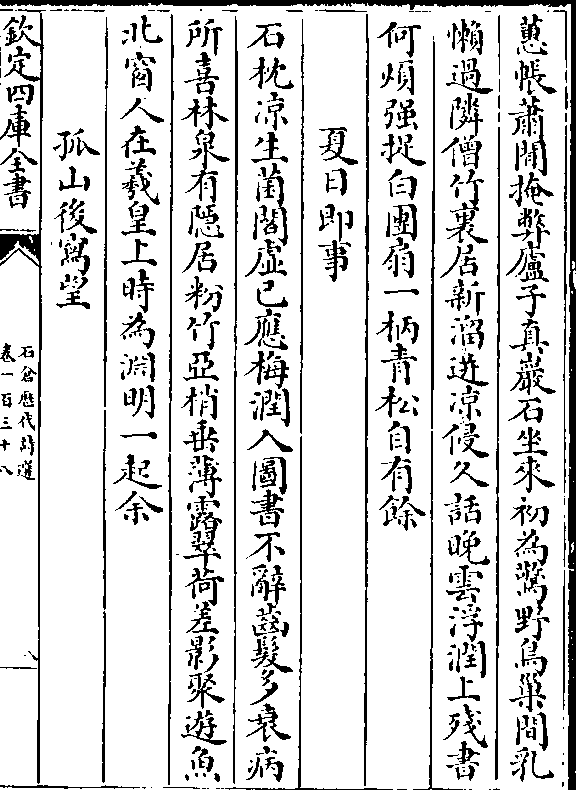 蕙帳蕭閒掩弊廬子真巖石坐來初為驚野鳥巢間乳
懶過隣僧竹裏居新溜迸凉侵久話晚雲浮潤上殘書
何煩强捉白團扇一柄青松自有餘
夏日即事
石枕凉生菌閣虛已應梅潤入圖書不辭齒髮多衰病
所喜林泉有隱居粉竹亞梢垂薄露翠荷差影聚遊魚
北窗人在羲皇上時為淵明一起余
孤山後寫望
欽定四庫全書
石倉歴代詩選
卷一百三十八
八